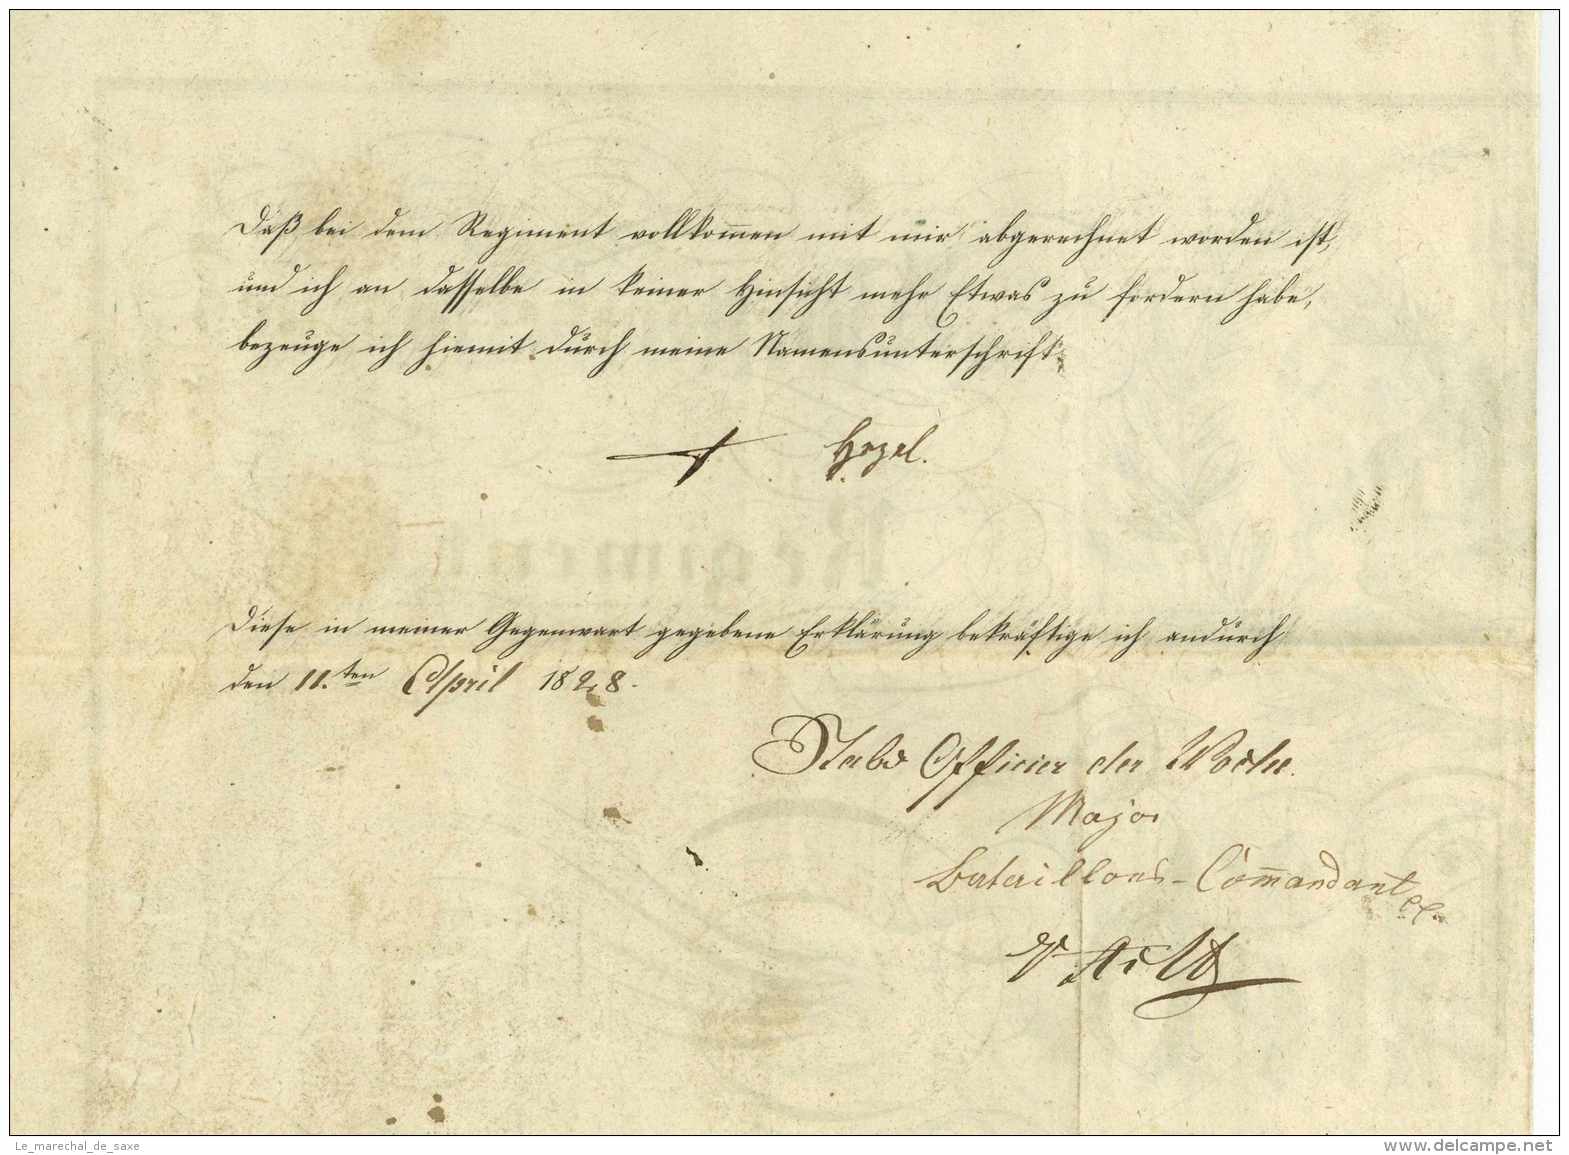 Daß bei dem Regiment vollkom̅en mit mir abgerechnet worden ist,
und ich an dasselbe in keiner Hinsicht mehr Etwas zu fordern habe,
bezeuge ich hiemit durch meine Namensunterschrift.
Hezel.
Regiment
Diese in meiner Gegenwart gegebene Erklärung bekräftige ich andurch
den 11.ten April 1828.
Stabs Officier der Woche.
Major
Bataillons-Com̅andant
Le_marechal_de_saxe
www.delcampe.net